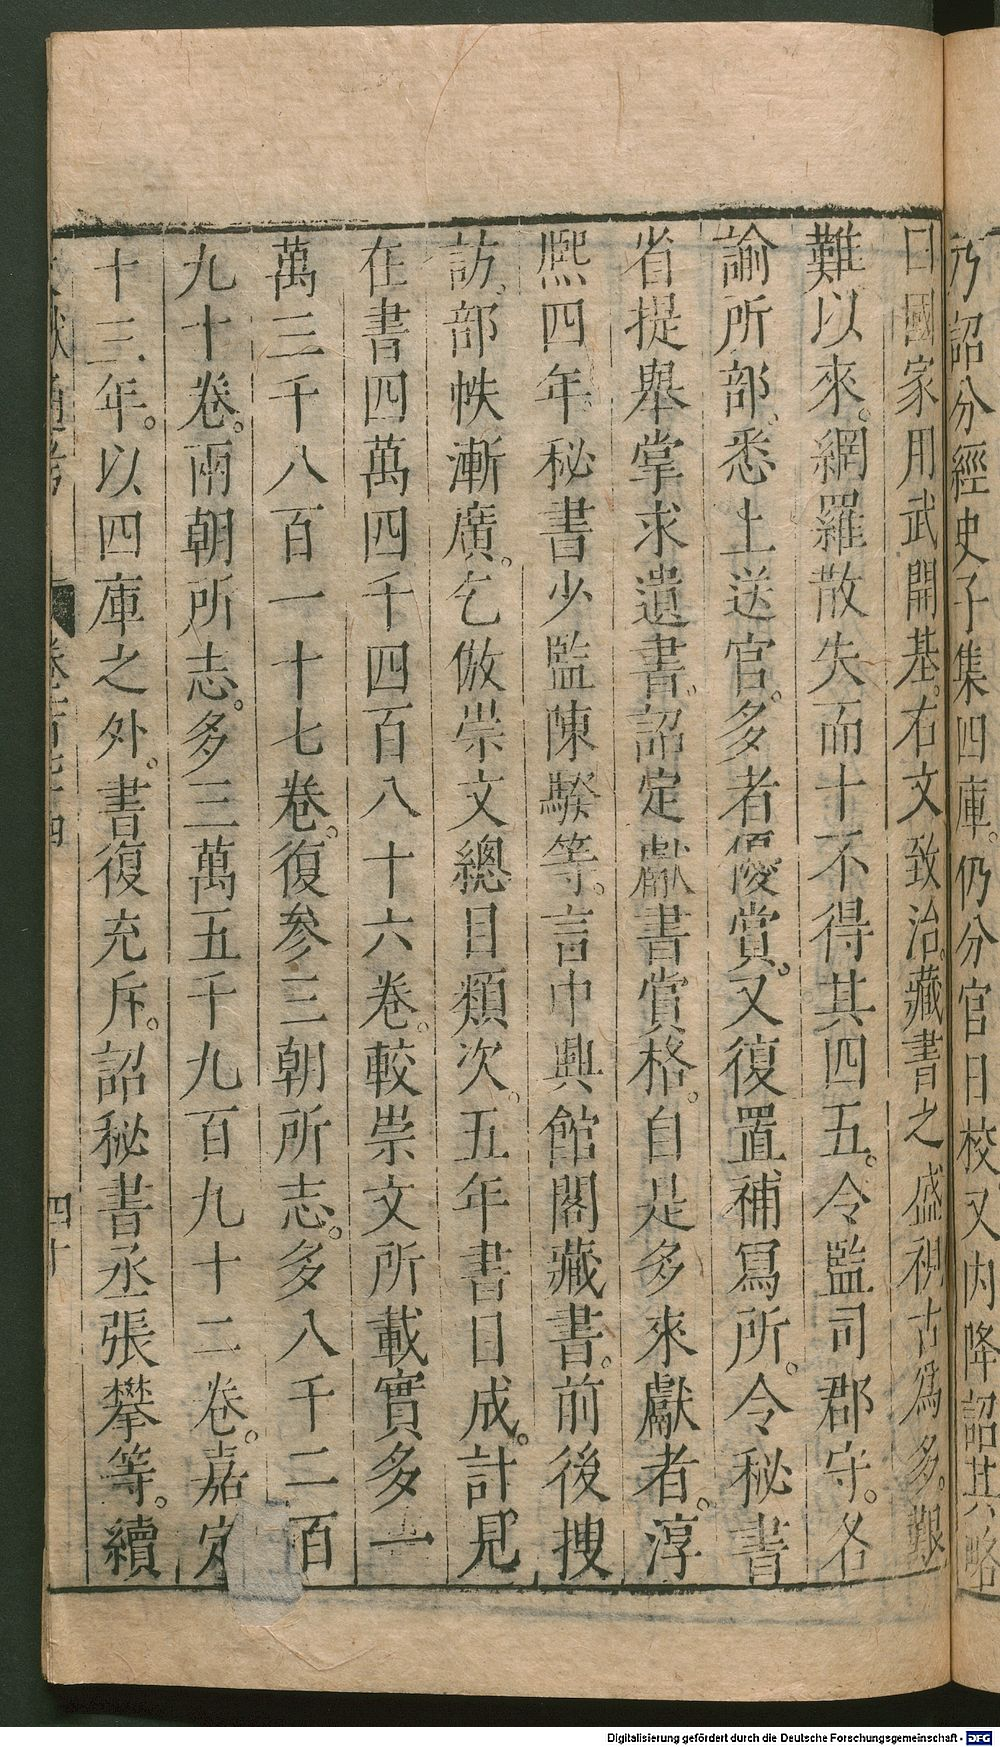 乃詔分經史子集四庫。仍分官日校。又內降詔其略
曰國家用武開基。右文致治。藏書之盛視古爲多。艱
難以來。網羅散失。而十不得其四五。令監司郡守。各
諭所部。悉上送官。多者優賞。又復置補寫所。令秘書
省提舉掌求遺書。詔定獻書賞格。自是多來獻者。淳
熈四年。秘書少監陳騤等。言中興館閣藏書。前後搜
訪。部帙漸廣。乞倣崇文總目類次。五年書目成。計見
在書四萬四千四百八十六卷。較崇文所載實多一
萬三千八百一十七卷。復參三朝所志。多八千二百
九十卷。兩朝所志。多三萬五千九百九十二卷。嘉定
十三年。以四庫之外。書復充斥。詔秘書丞張攀等。續
文獻通考 卷一百七十四 四十
Digitalisierung gefördert durch die Deutsche Forschungsgemeinschaft - DFG